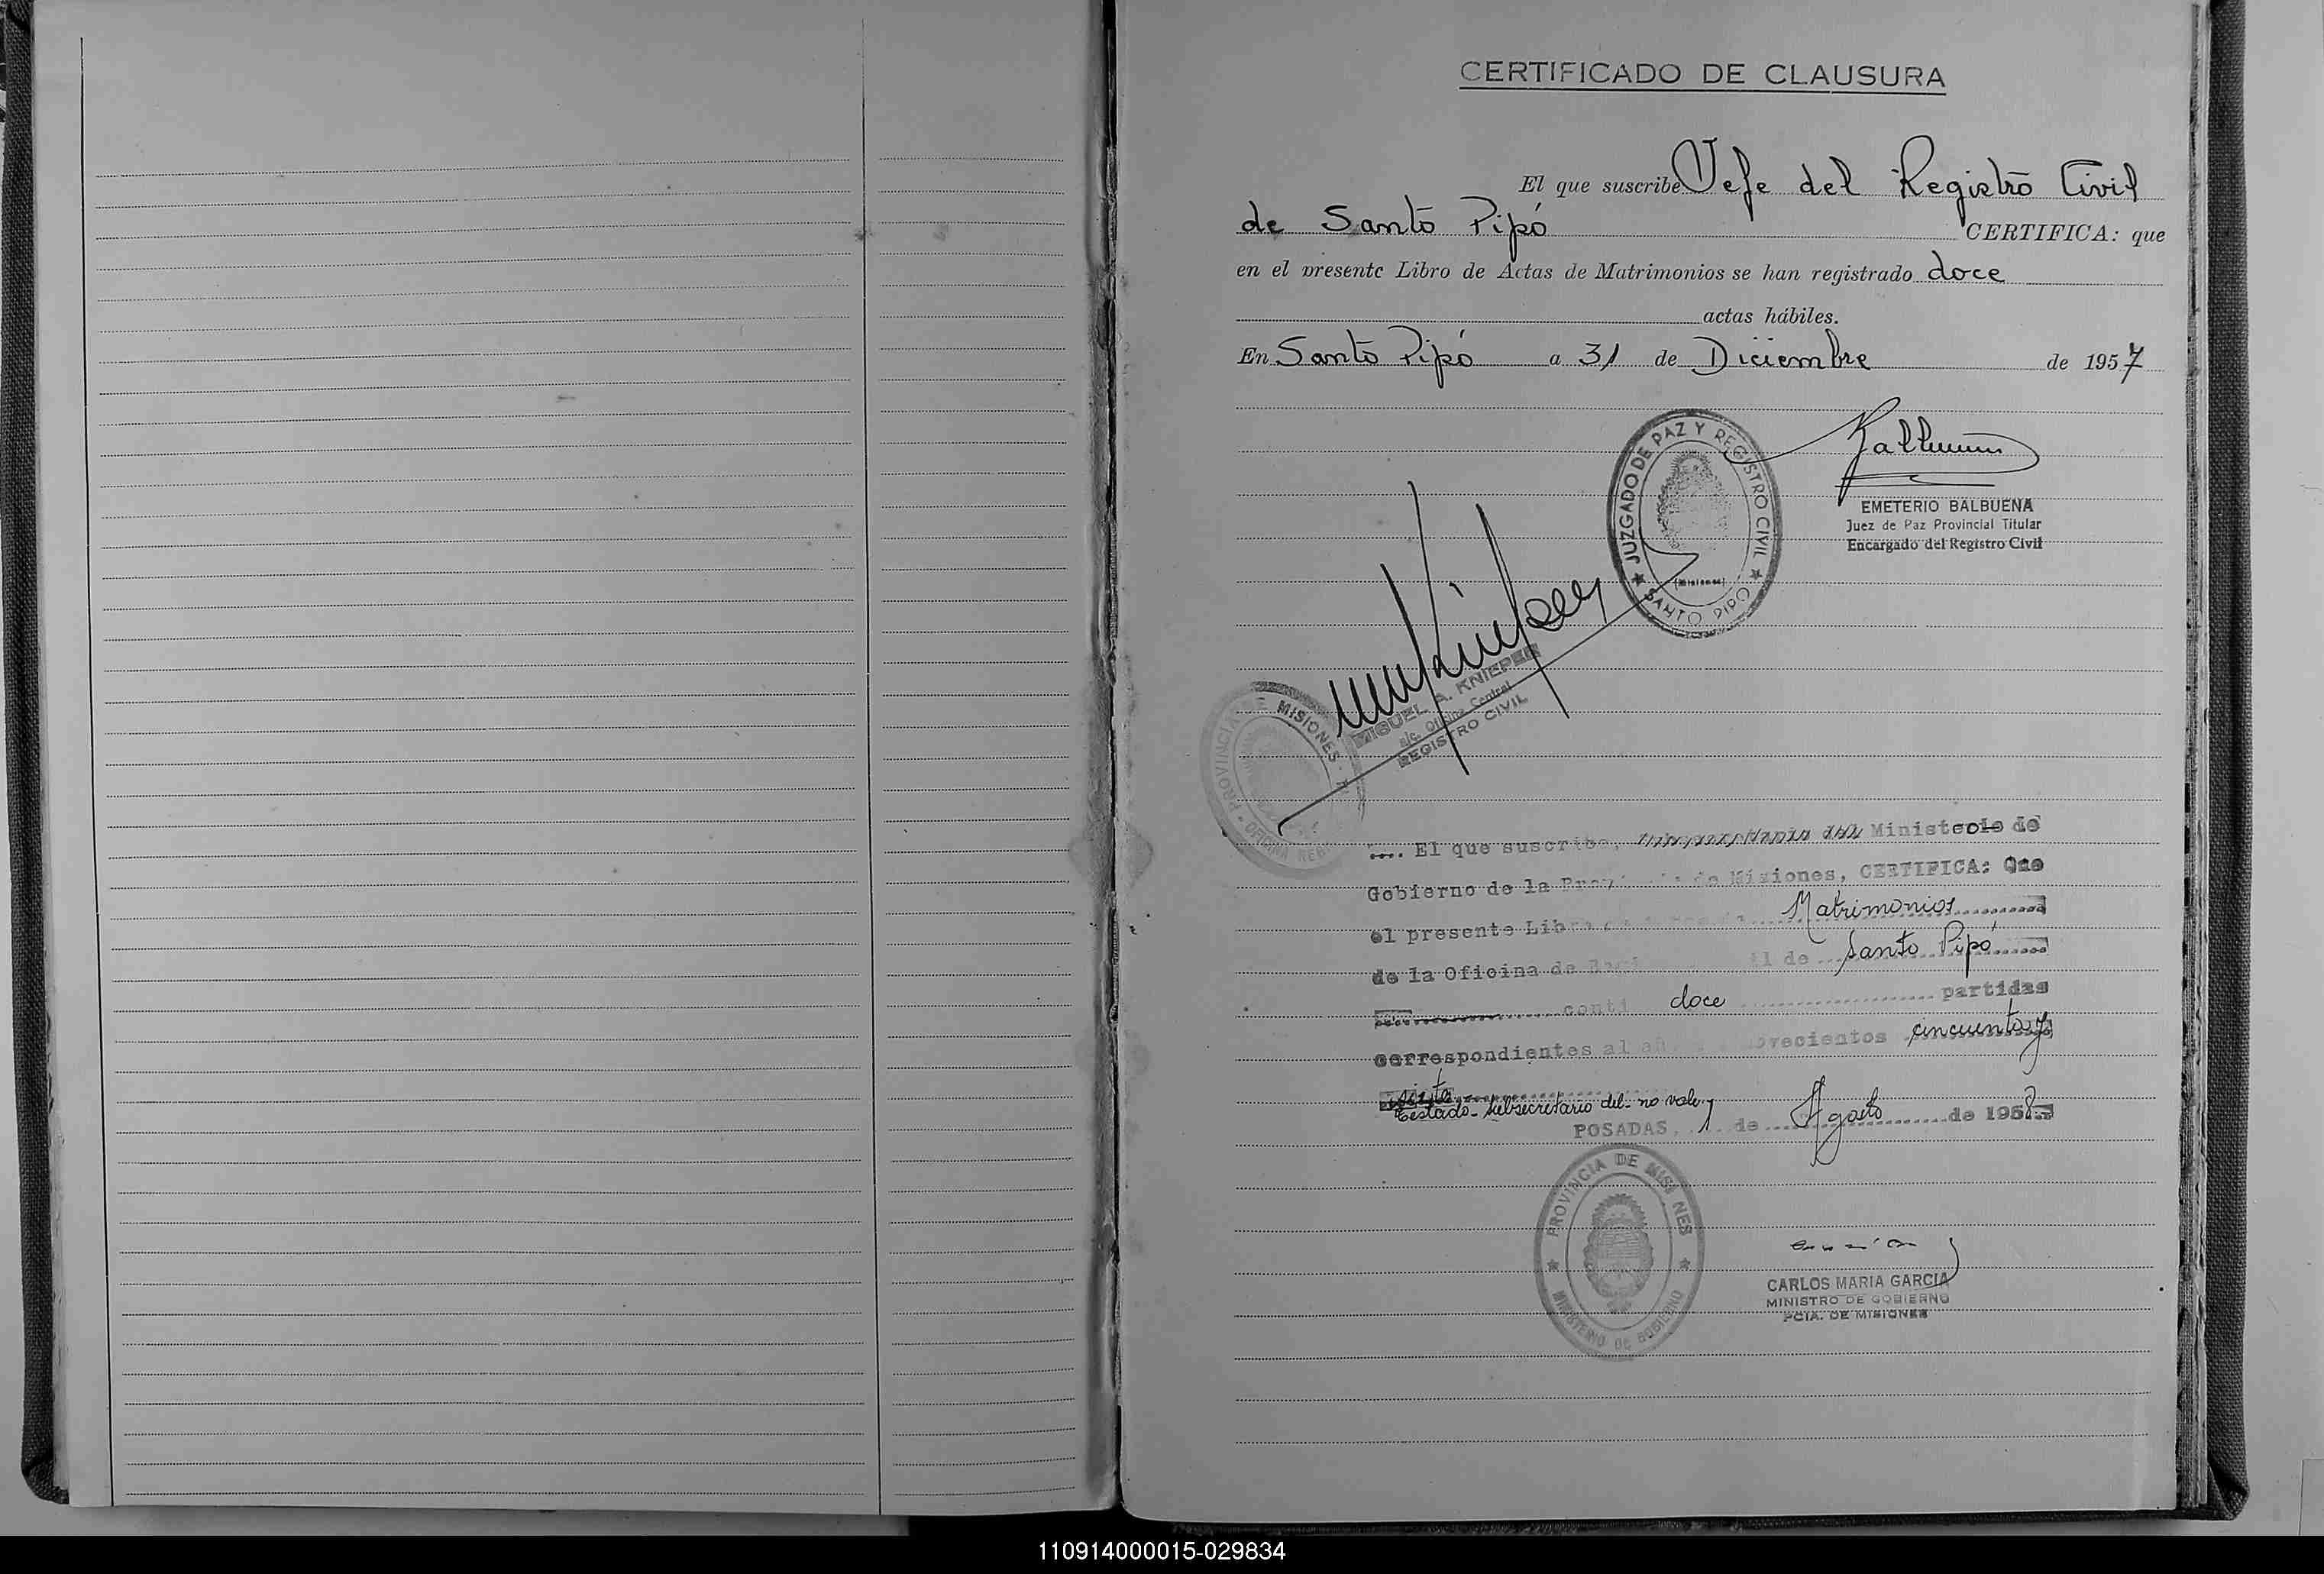 CERTIFICADO DE CLAUSURA
El que suscribe Jefe del Registro Civil
de Santo Pipó CERTIFICA: que
en el presente Libro de Actas de Matrimonios se han registrado doce
actas hábiles.
En Santo Pipó a 31 de Diciembre de 1957
JUZGADO DE PAZ Y REGISTRO CIVIL
(Misiones)
SANTO PIPO
EMETERIO BALBUENA
Juez de Paz Provincial Titular
Encargado del Registro Civil
MIGUEL A. KNIEPER
a/c. Oficina Central
REGISTRO CIVIL
PROVINCIA DE MISIONES
OFICINA REG
El que suscribe, Ministerio de
Gobierno de la Prov de Misiones, CERTIFICA: Que
el presente Libro Matrimonios
de la Oficina de Reg il de Santo Pipó
conti doce partidas
correspondientes al añ novecientos cincuenta y
siete
Testado - subsecretario del - no vale
POSADAS, 1 de Agosto de 1958
PROVINCIA DE MISI NES
MINISTERIO DE GOBIERNO
CARLOS MARIA GARCIA
MINISTRO DE GOBIERNO
PCIA. DE MISIONES
110914000015-029834